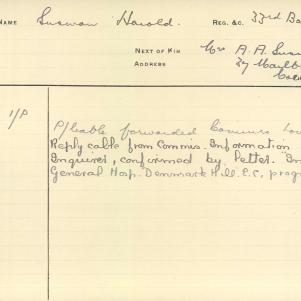 NAME Harold. REG. &C. 33rd Ba
NEXT OF KIN Mrs A. A.
ADDRESS 27
1/P P/cable forwarded Commrs
Reply cable from Commis. Information
Enquiries, confirmed by letter.
General Hosp. Denmark Hill. E.C. prog